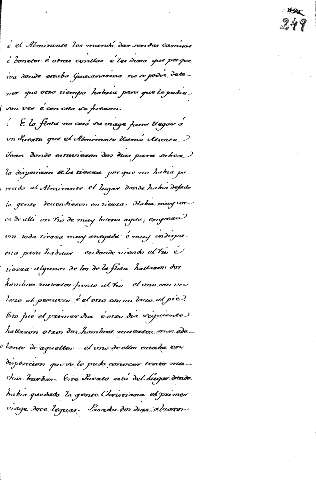 249
é el Almirante les mandó dar sendas camisas
é bonetes é otras cosillas é les dixo que porque
iva donde estaba Guacanagari no se podia dete-
ner que otro tiempo habria para que le pudie-
sen ver é con esto se fueron.
E la flota no cesó su viage fasta llegar á
un Puerto que el Almirante llamó
donde estuvieron dos dias para saber
la disposicion de la tierra porque no habia pa-
recido al Almirante el lugar donde habia dejado
la gente descendieron en tierra. Habia muy cer-
ca de alli un rio de muy buena agua,
en toda tierra muy é muy indispu-
esta para habitar
tierra algunos de los de la flota hallaron dos
hombres muertos junto al rio el uno con un
lazo al pescuezo é el otro con otro lazo al pié
Esto fué el primer dia é otro dia siguiente
hallaron otros dos hombres muertos mas ade-
lante de aquellos el uno de ellos estaba en
disposicion que se le pudo conocer tener mu-
chas barbas. Este Puerto está del lugar donde
habia quedado la gente Christiana el primer
viage doce leguas. Pasados dos dias alzaron